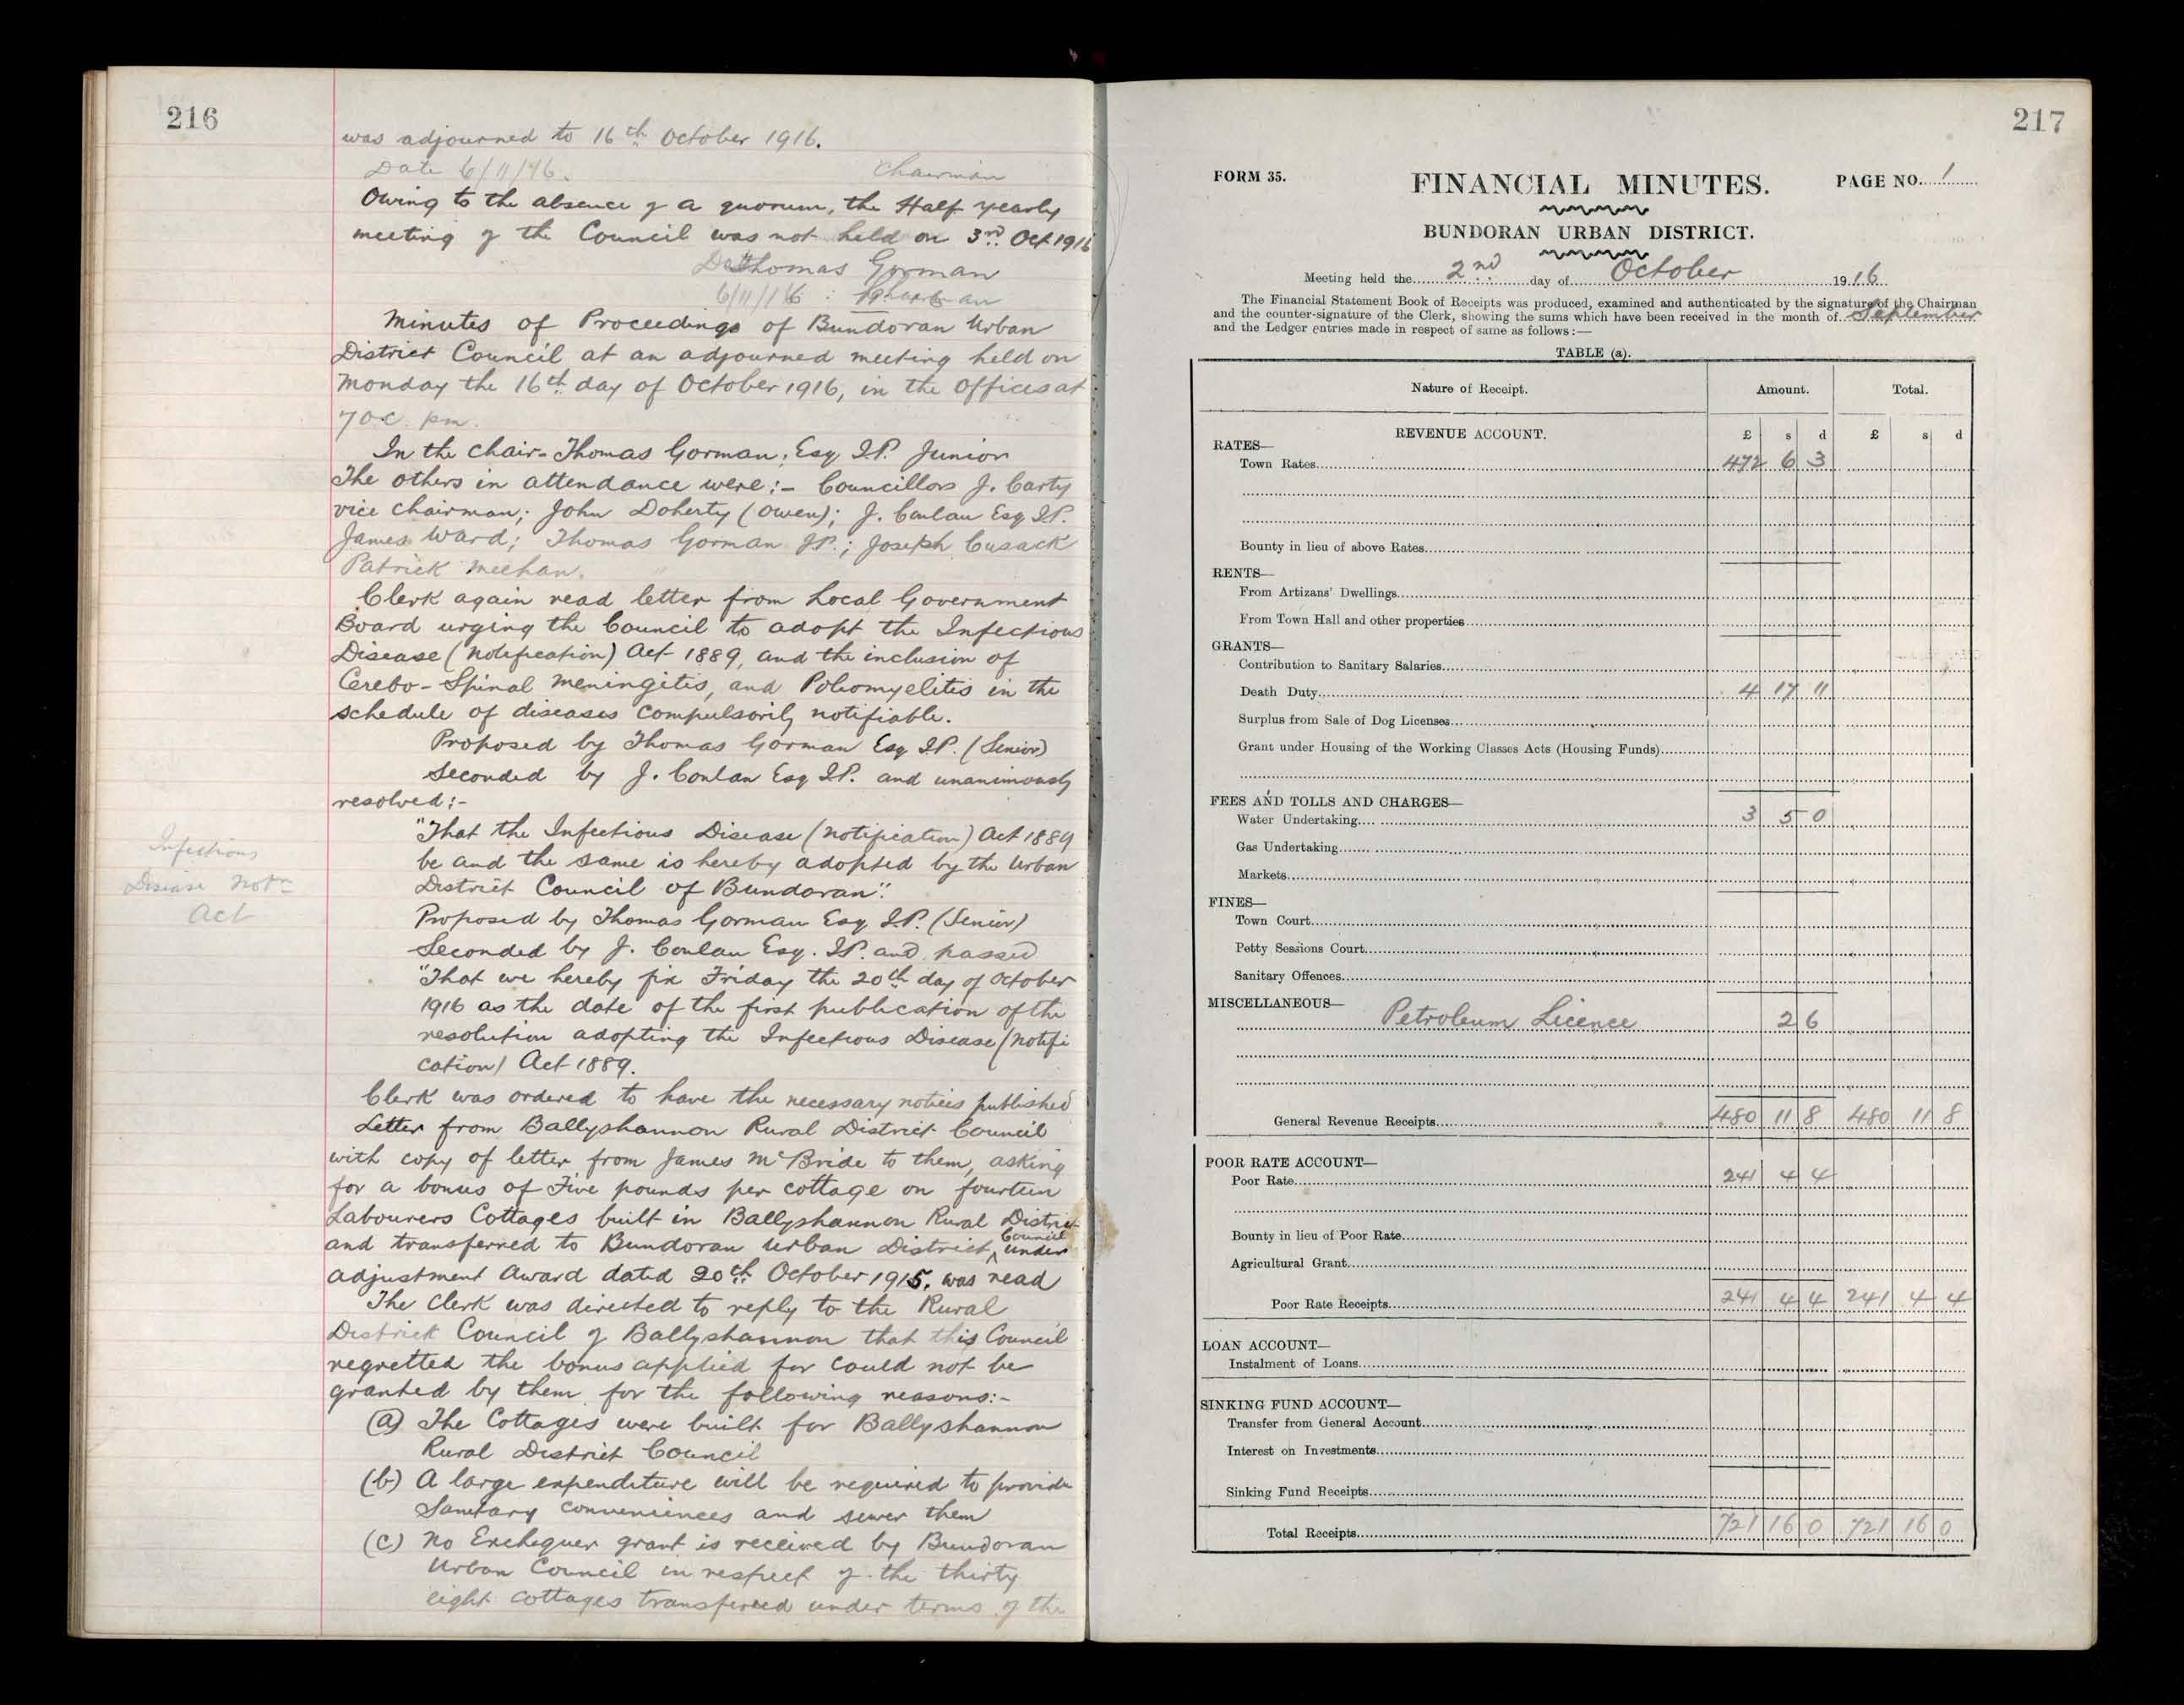 216
was adjourned to 16th October 1916.
Date 6/11/16. Chairman
Owing to the absence of a quorum, the Half yearly
meeting of the Council was not held on 3rd Oct 1916
Thomas Gorman
6/11/16 : Chairman
Minutes of Proceedings of Bundoran Urban
District Council at an adjourned meeting held on
Monday the 16th day of October 1916, in the Offices at
7 oc. pm.
In the chair - Thomas Gorman, Esq J.P. Junior
The others in attendance were:- Councillors J. Carty
vice chairman; John Doherty (Owen); J. Conlan Esq J.P.
James Ward; Thomas Gorman JP.; Joseph Cusack
Patrick Meehan.
Clerk again read letter from Local Government
Board urging the Council to adopt the Infectious
Disease (Notification) Act 1889, and the inclusion of
Cerebo-Spinal Meningitis, and Poliomyelitis in the
schedule of diseases compulsorily notifiable.
Proposed by Thomas Gorman Esq J.P. (Senior)
Seconded by J. Conlan Esq J.P. and unanimously
resolved:-
"That the Infectious Disease (Notification) Act 1889
be and the same is hereby adopted by the Urban
District Council of Bundoran".
Infectious
Disease Notn
Act
Proposed by Thomas Gorman Esq J.P. (Senior)
Seconded by J. Conlan Esq. J.P. and passed
"That we hereby fix Friday the 20th day of October
1916 as the date of the first publication of the
resolution adopting the Infectious Disease (Notifi
cation) Act 1889.
Clerk was ordered to have the necessary notices published
Letter from Ballyshannon Rural District Council
with copy of letter from James McBride to them, asking
for a bonus of Five pounds per cottage on fourteen
Labourers Cottages built in Ballyshannon Rural District
and transferred to Bundoran Urban District Council under
adjustment Award dated 20th October 1915. was read
The Clerk was directed to reply to the Rural
District Council of Ballyshannon that this Council
regretted the bonus applied for could not be
granted by them for the following reasons:-
(a) The Cottages were built for Ballyshannon
Rural District Council
(b) A large expenditure will be required to provide
Sanitary conveniences and sewer them
(c) No Exchequer grant is received by Bundoran
Urban Council in respect of the thirty
eight cottages transferred under terms of the
217
FORM 35.
FINANCIAL MINUTES.
PAGE NO. 1
BUNDORAN URBAN DISTRICT.
Meeting held the 2nd day of October 1916
The Financial Statement Book of Receipts was produced, examined and authenticated by the signature of the Chairman
and the counter-signature of the Clerk, showing the sums which have been received in the month of September
and the Ledger entries made in respect of same as follows:—
TABLE (a).
Nature of Receipt. Amount. Total.
REVENUE ACCOUNT. £ s d £ s d
RATES—
Town Rates 472 6 3
Bounty in lieu of above Rates
RENTS—
From Artizans' Dwellings
From Town Hall and other properties
GRANTS—
Contribution to Sanitary Salaries
Death Duty 4 17 11
Surplus from Sale of Dog Licenses
Grant under Housing of the Working Classes Acts (Housing Funds)
FEES AND TOLLS AND CHARGES—
Water Undertaking 3 5 0
Gas Undertaking
Markets
FINES—
Town Court
Petty Sessions Court
Sanitary Offences
MISCELLANEOUS—
Petroleum Licence 2 6
General Revenue Receipts 480 11 8 480 11 8
POOR RATE ACCOUNT—
Poor Rate 241 4 4
Bounty in lieu of Poor Rate
Agricultural Grant
Poor Rate Receipts 241 4 4 241 4 4
LOAN ACCOUNT—
Instalment of Loans
SINKING FUND ACCOUNT—
Transfer from General Account
Interest on Investments
Sinking Fund Receipts
Total Receipts 721 16 0 721 16 0